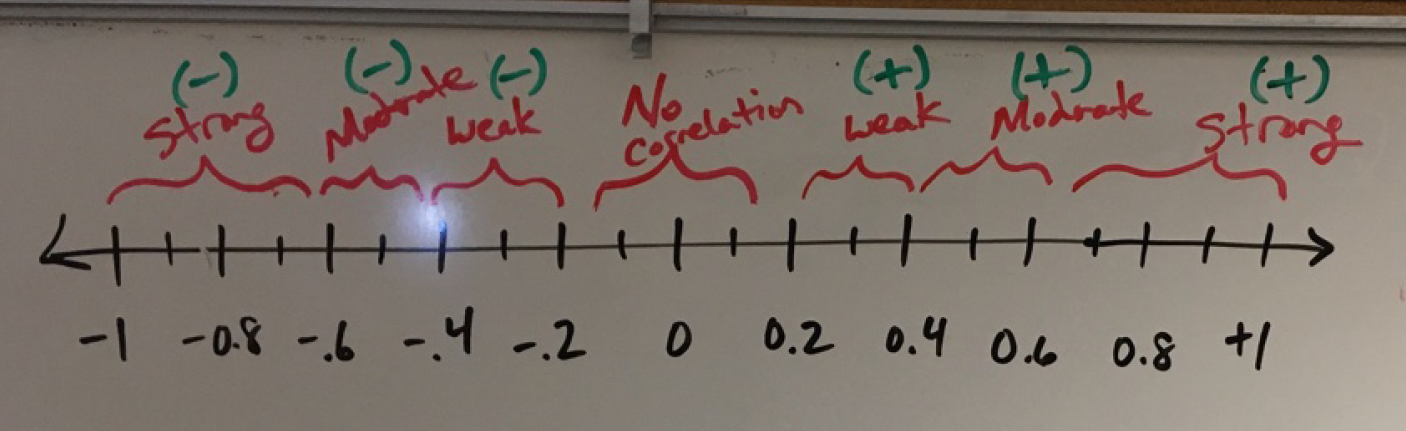 (-) (-) (-) (+) (+) (+)
Strong Moderate weak No correlation weak Modrate Strong
-1 -0.8 -.6 -.4 -.2 0 0.2 0.4 0.6 0.8 +1